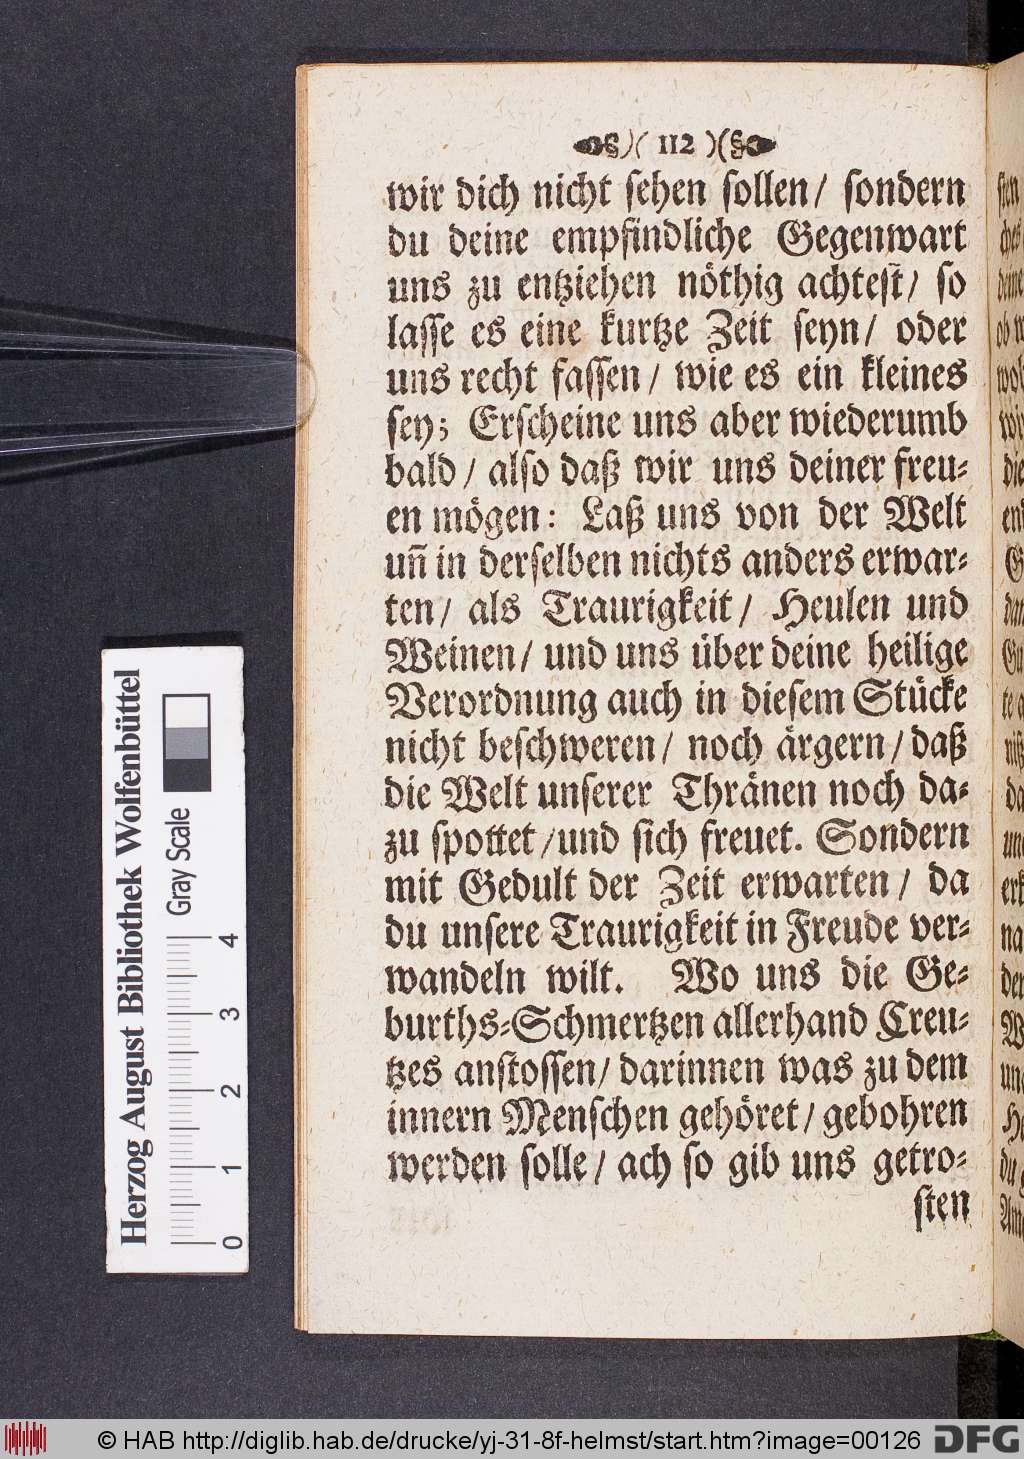 )( 112 )(
wir dich nicht sehen sollen/ sondern
du deine empfindliche Gegenwart
uns zu entziehen nöthig achtest/ so
lasse es eine kurtze Zeit seyn/ oder
uns recht fassen/ wie es ein kleines
sey; Erscheine uns aber wiederumb
bald/ also daß wir uns deiner freu⸗
en mögen: Laß uns von der Welt
un̄ in derselben nichts anders erwar⸗
ten/ als Traurigkeit/ Heulen und
Weinen/ und uns über deine heilige
Verordnung auch in diesem Stücke
nicht beschweren/ noch ärgern/ daß
die Welt unserer Thränen noch da⸗
zu spottet/ und sich freuet. Sondern
mit Gedult der Zeit erwarten/ da
du unsere Traurigkeit in Freude ver⸗
wandeln wilt. Wo uns die Ge⸗
burths⸗Schmertzen allerhand Creu⸗
tzes anstossen/ darinnen was zu dem
innern Menschen gehöret/ gebohren
werden solle/ ach so gib uns getro⸗
sten
Herzog August Bibliothek Wolfenbüttel
Gray Scale
0 1 2 3 4
© HAB http://diglib.hab.de/drucke/yj-31-8f-helmst/start.htm?image=00126
DFG